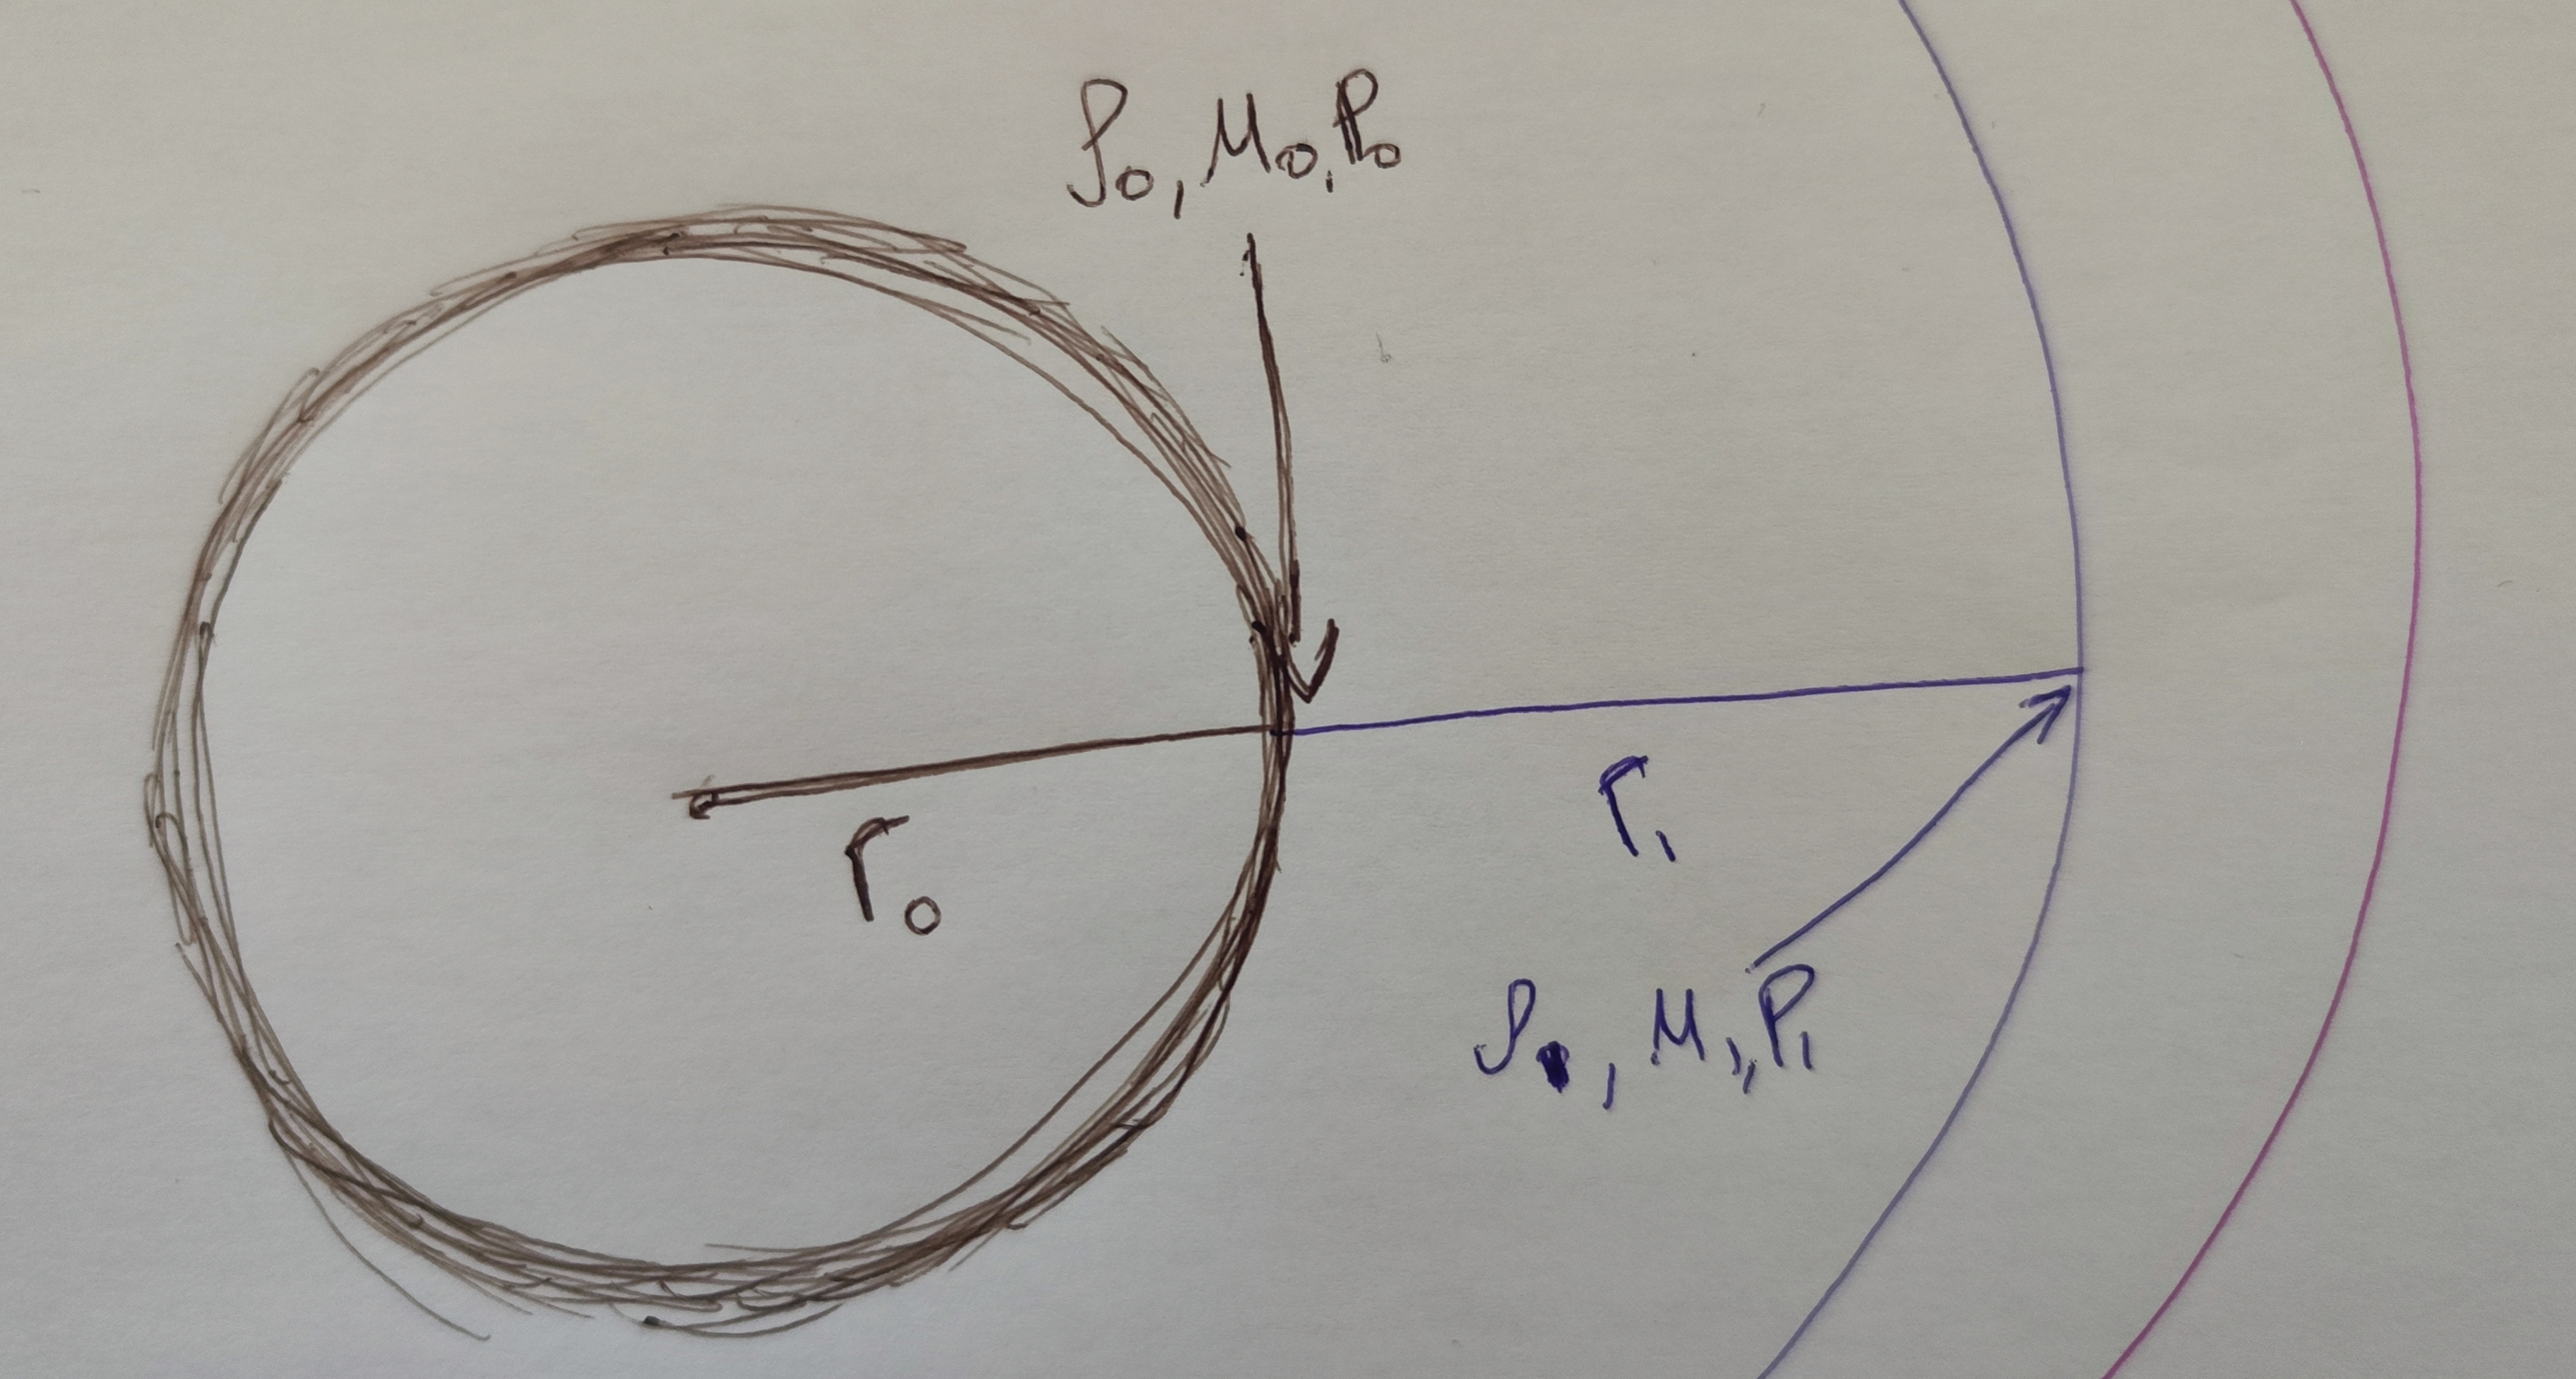 ρ₀, M₀, P₀
r₀
r₁
ρ, M₁, P₁